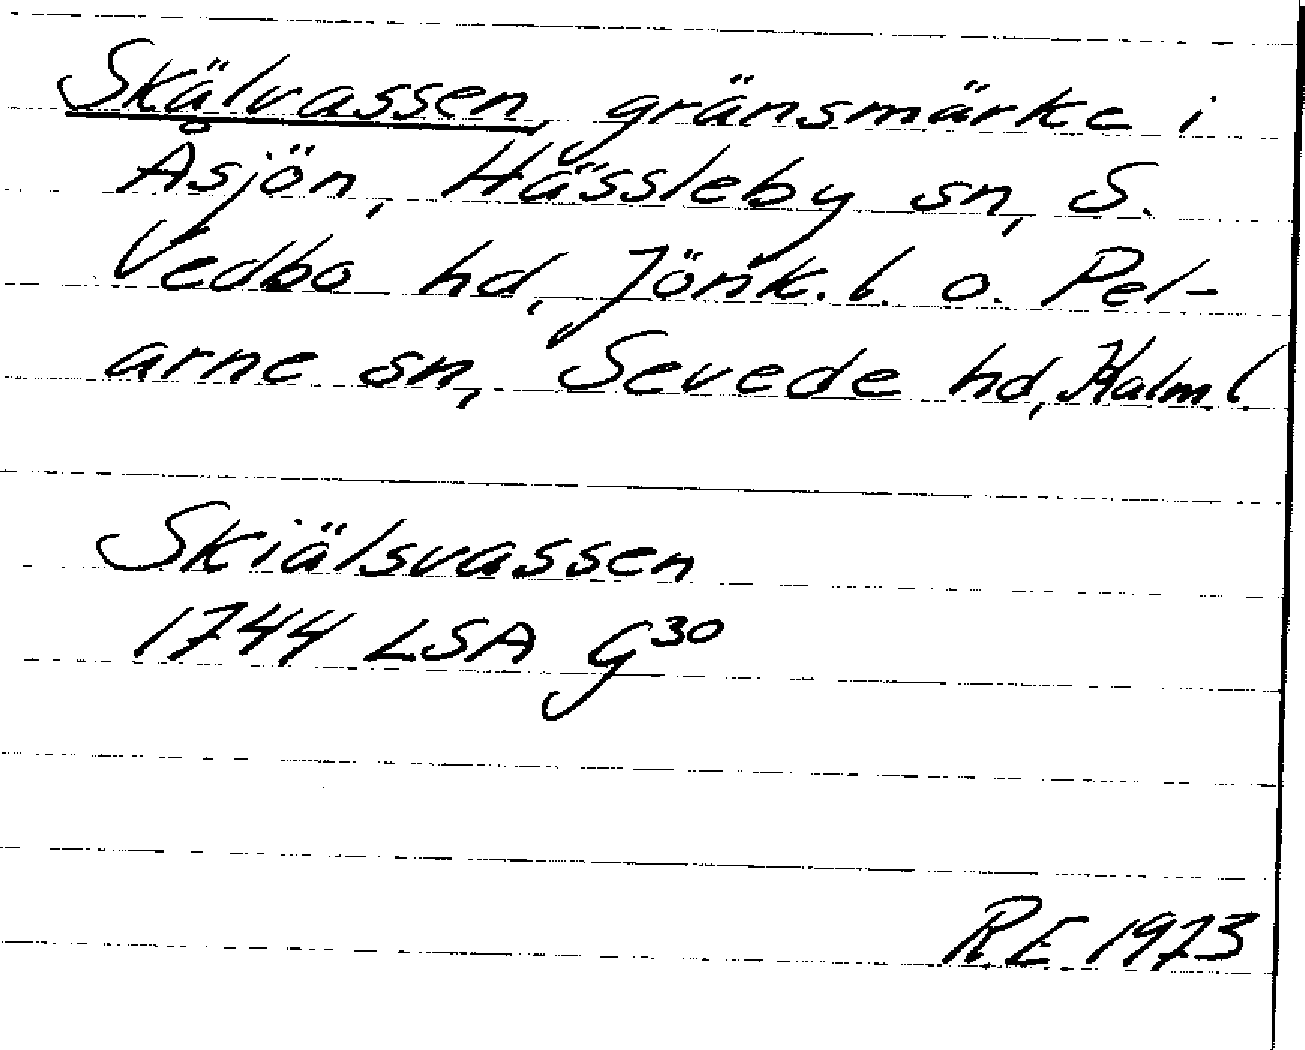 Skälvassen, gränsmärke i
Åsjön, Hässleby sn, S.
Vedbo hd, Jönk. l. o. Pel-
arne sn, Sevede hd, Kalm. l.
Skiälsvassen
1744 LSA G30
R.E. 1973